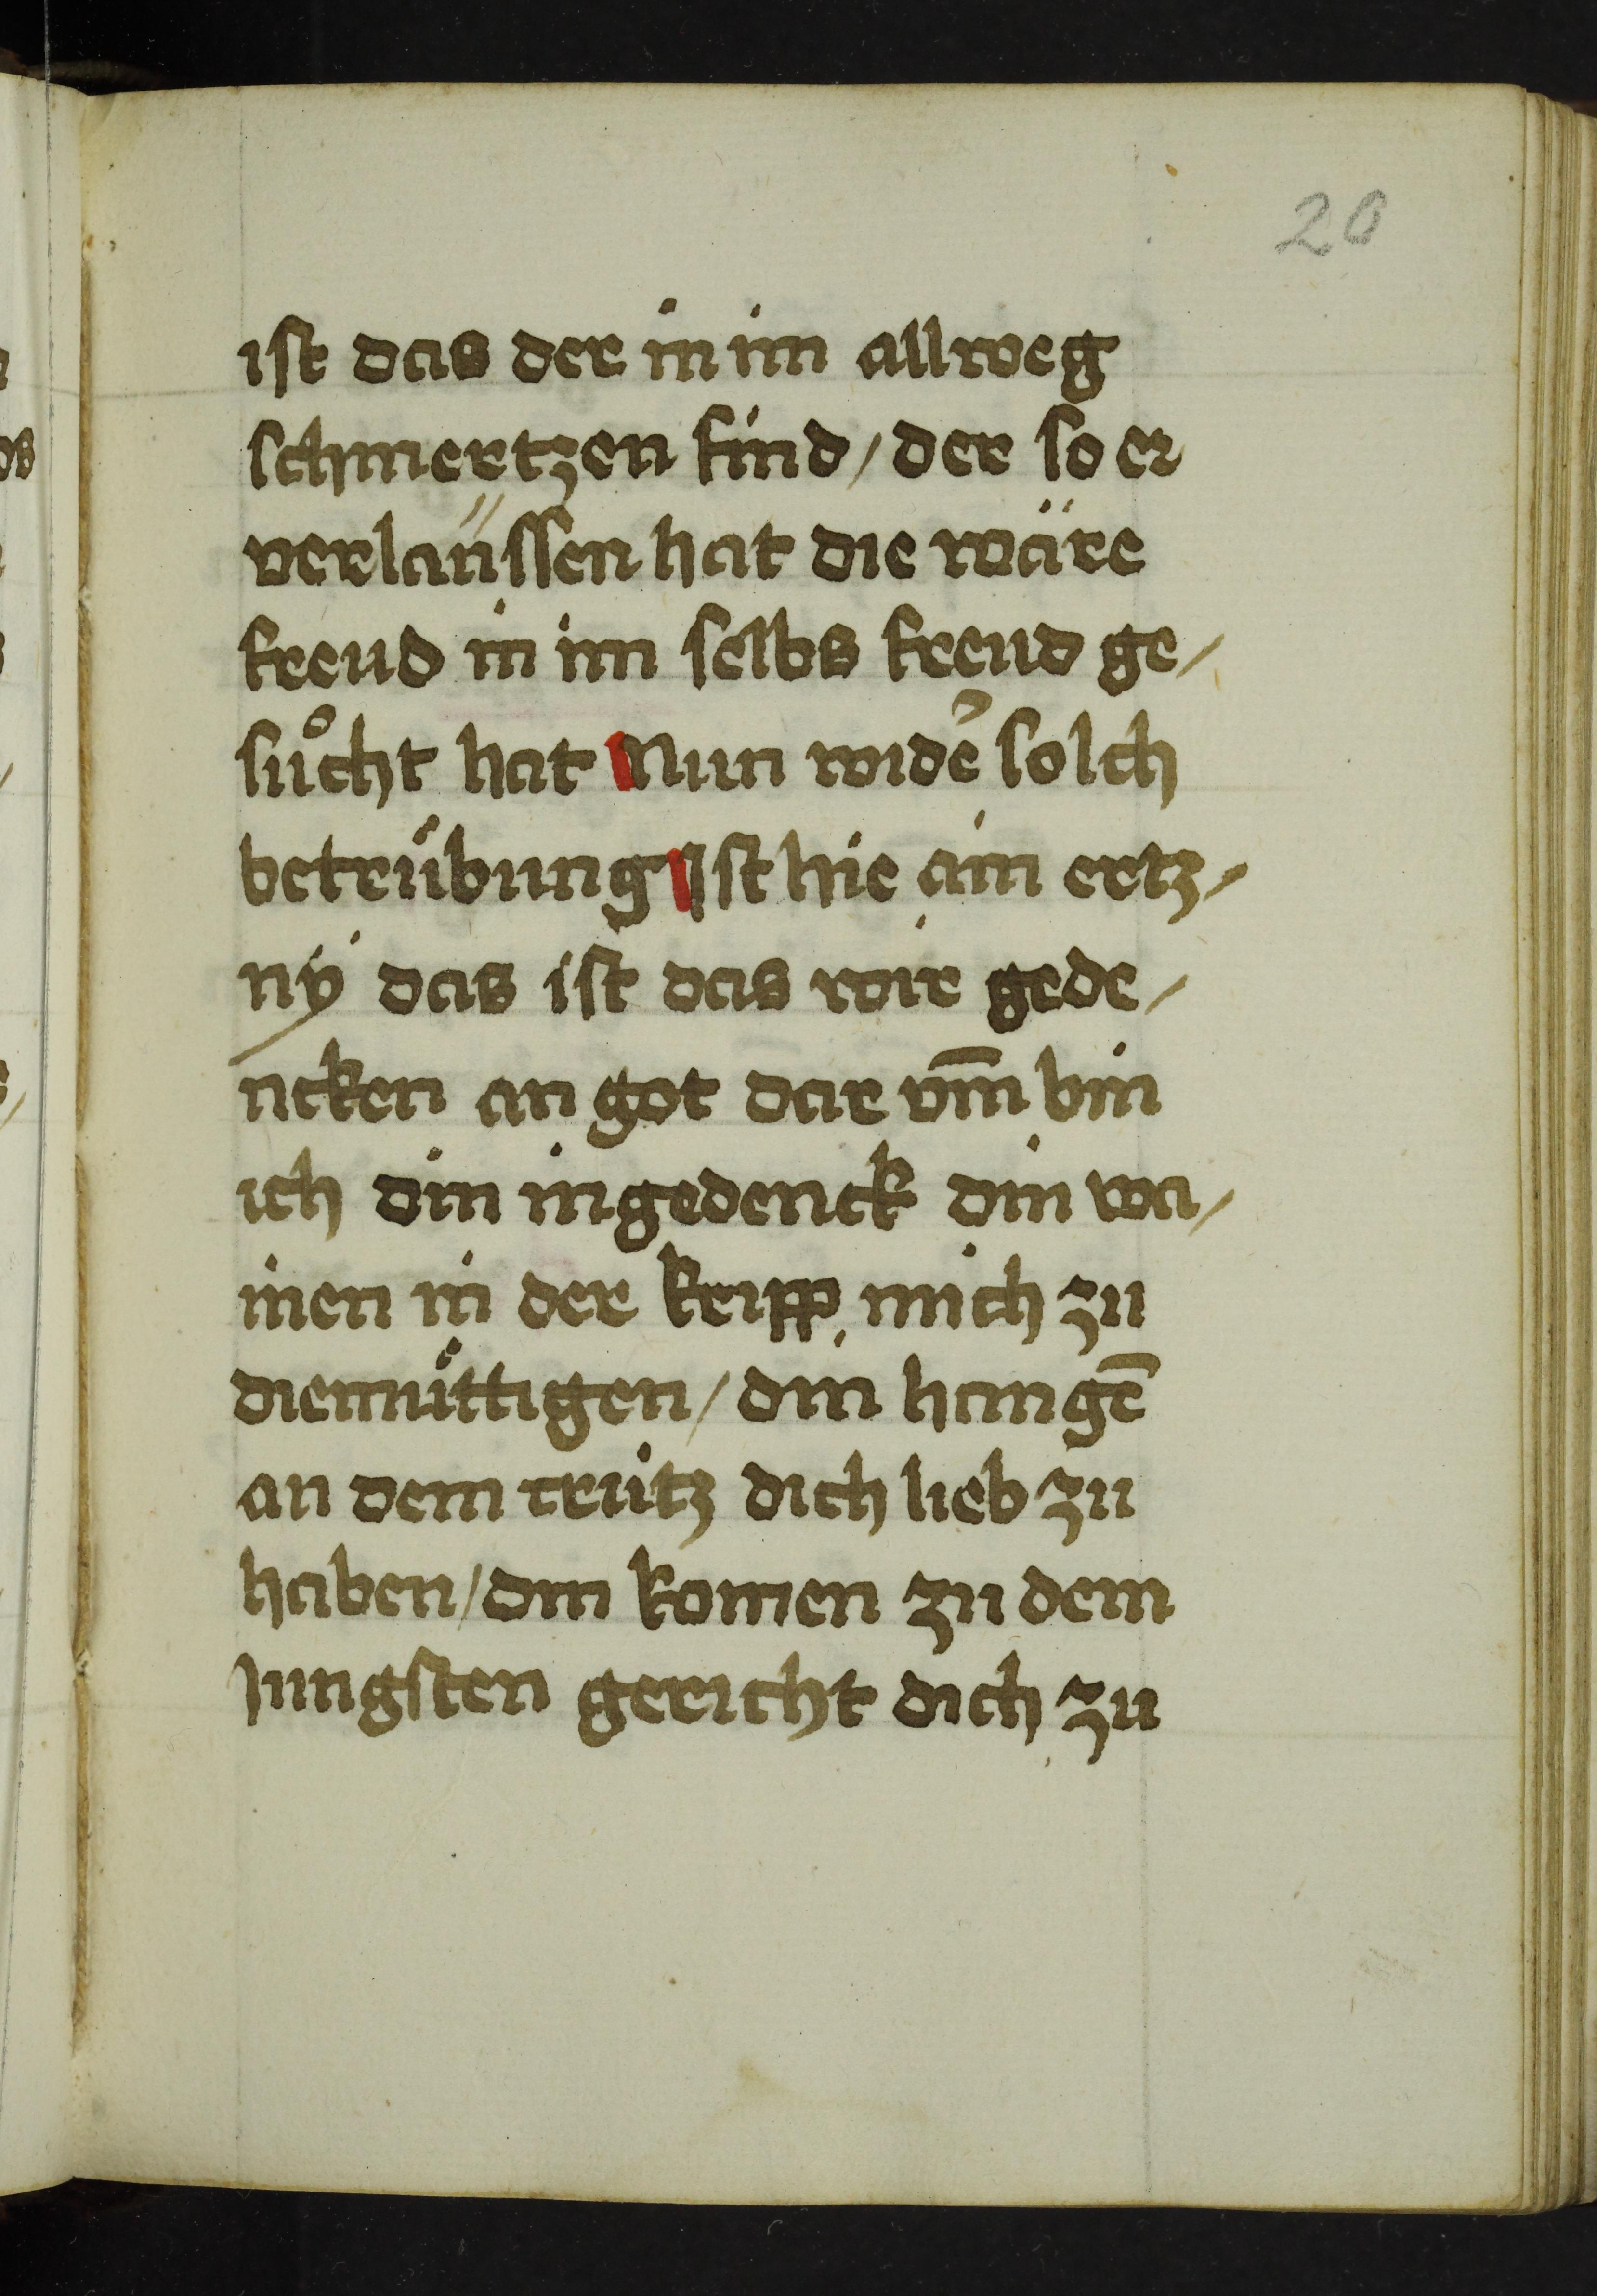 20
ist das der in im allweg
schmertzen find / der so er
verlaüssen hat die wäre
freud in im selbs freud ge/
sůcht hat Nun wideʾ solch
betrübung Ist hie ain ertz/
nÿ das ist das wir gede/
ncken an got dar vm̄ bin
ich din ingedenck din wa/
inen in der kripp mich zu
diemüttigen / din hangē
an dem crütz dich lieb zu
haben / din komen zu dem
Jungsten gericht dich zu